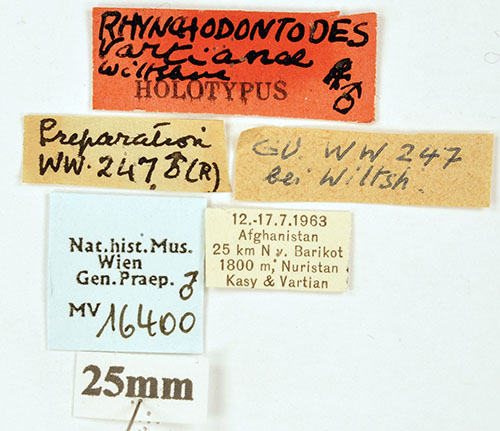 RHYNCHODONTODES
Vartianae
Wiltshire
HOLOTYPUS ♂
Preparation
WW. 247 ♂ (R)
GU. WW 247
bei Wiltsh.
Nat.hist.Mus.
Wien
Gen.Praep. ♂
MV 16400
12.-17.7.1963
Afghanistan
25 km N v. Barikot
1800 m, Nuristan
Kasy & Vartian
25mm